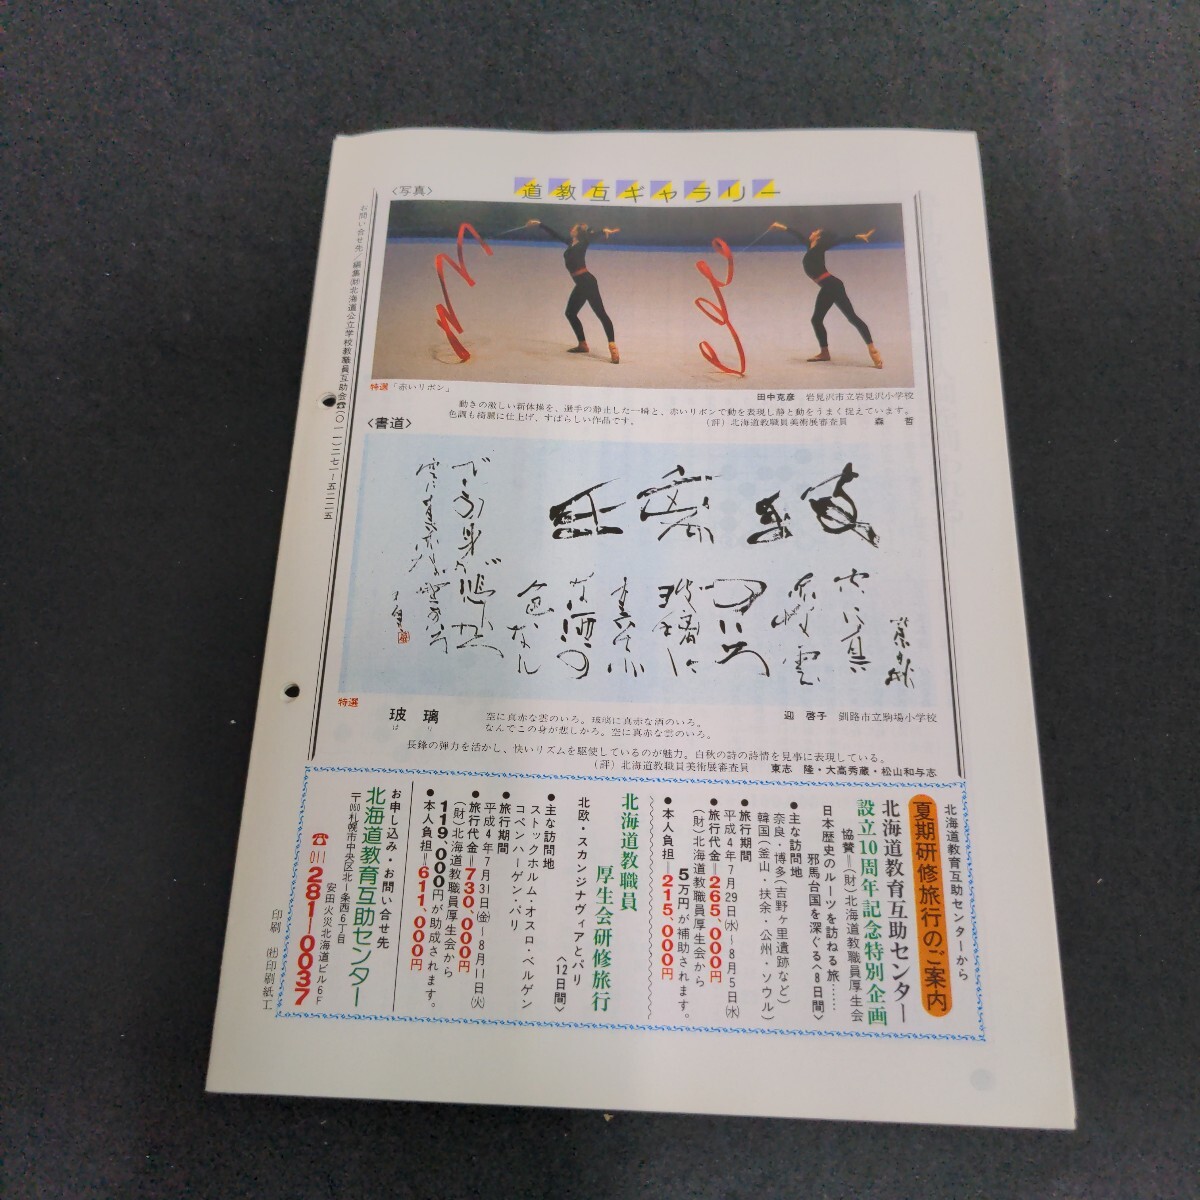 道教互ギャラリー
〈写真〉
特選「赤いリボン」
田中克彦 岩見沢市立岩見沢小学校
動きの激しい新体操を、選手の静止した一瞬と、赤いリボンで動を表現し静と動をうまく捉えています。
色調も綺麗に仕上げ、すばらしい作品です。
(評)北海道教職員美術展審査員 森 哲
〈書道〉
特選
玻璃
はり
空に真赤な雲のいろ。玻璃に真赤な酒のいろ。
なんでこの身が悲しかろ。空に真赤な雲のいろ。
迎 啓子 釧路市立駒場小学校
長鋒の弾力を活かし、快いリズムを駆使しているのが魅力。白秋の詩の詩情を見事に表現している。
(評)北海道教職員美術展審査員 東志 隆・大高秀蔵・松山和与志
お問い合せ先/編集㈶北海道公立学校教職員互助会☎(〇一一)二七一-五二二五
北海道教育互助センターから
夏期研修旅行のご案内
北海道教育互助センター
設立10周年記念特別企画
協賛=(財)北海道教職員厚生会
日本歴史のルーツを訪ねる旅……
邪馬台国を深ぐる〈8日間〉
●主な訪問地
奈良・博多(吉野ヶ里遺跡など)
韓国(釜山・扶余・公州・ソウル)
●旅行期間
平成4年7月29日(水)〜8月5日(水)
●旅行代金=265,000円
(財)北海道教職員厚生会から
5万円が補助されます。
●本人負担=215,000円
北海道教職員
厚生会研修旅行
北欧・スカンジナヴィアとパリ
〈12日間〉
●主な訪問地
ストックホルム・オスロ・ベルゲン
コペンハーゲン・パリ
●旅行期間
平成4年7月31日(金)〜8月11日(火)
●旅行代金=730,000円
(財)北海道教職員厚生会から
119,000円が助成されます。
●本人負担=611,000円
お申し込み・お問い合せ先
北海道教育互助センター
〒060札幌市中央区北1条西6丁目
安田火災北海道ビル6F
☎011 281-0037
印刷 ㈳印刷紙工